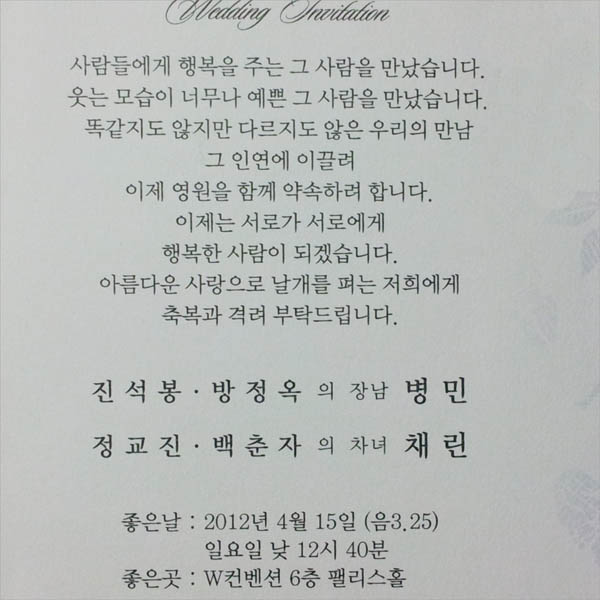 Wedding Invitation
사람들에게 행복을 주는 그 사람을 만났습니다.
웃는 모습이 너무나 예쁜 그 사람을 만났습니다.
똑같지도 않지만 다르지도 않은 우리의 만남
그 인연에 이끌려
이제 영원을 함께 약속하려 합니다.
이제는 서로가 서로에게
행복한 사람이 되겠습니다.
아름다운 사랑으로 날개를 펴는 저희에게
축복과 격려 부탁드립니다.
진석봉 · 방정옥 의 장남 병민
정교진 · 백춘자 의 차녀 채린
좋은날 : 2012년 4월 15일 (음3.25)
일요일 낮 12시 40분
좋은곳 : W컨벤션 6층 팰리스홀